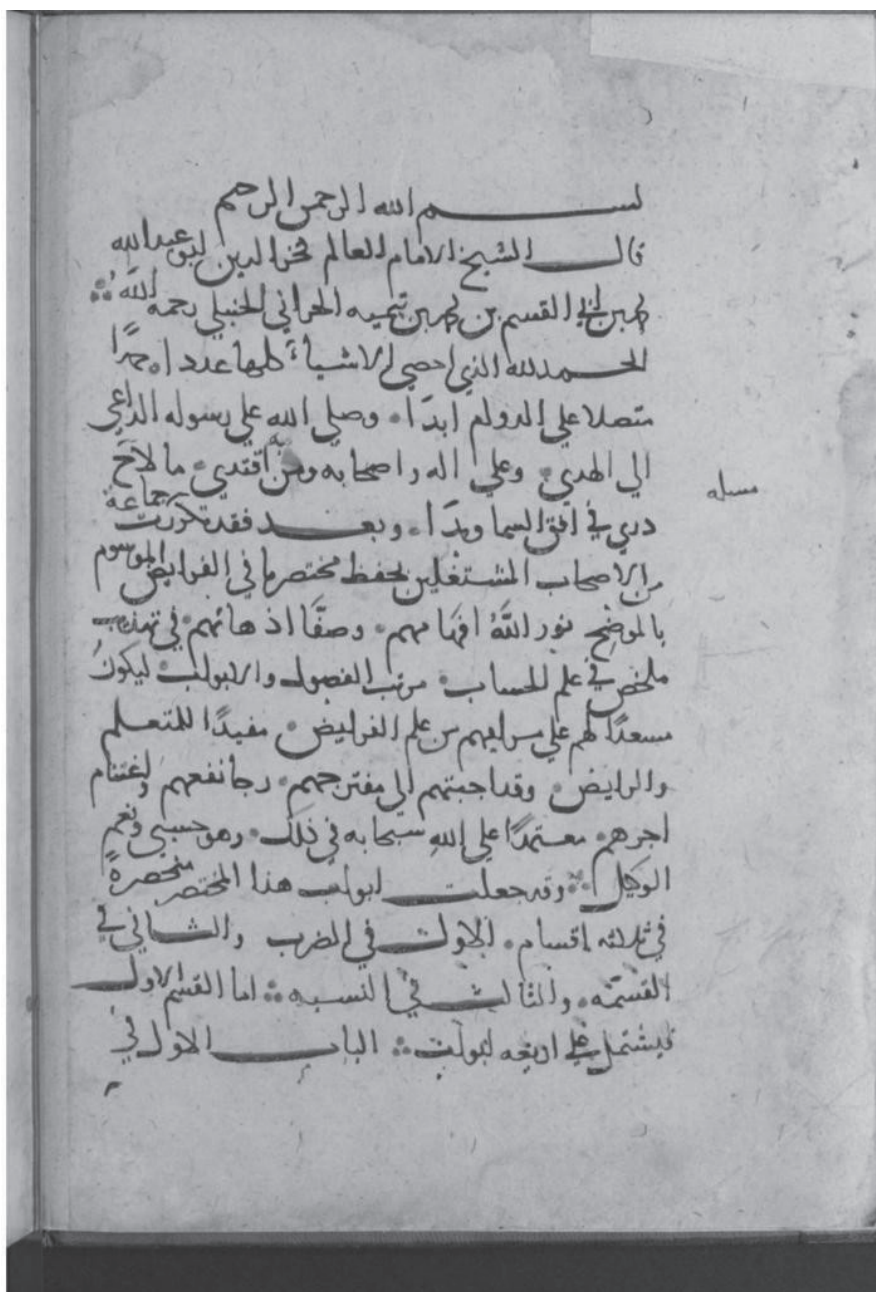 بسم الله الرحمن الرحيم
قال الشيخ الامام العالم فخر الدين ابو عبد الله
محمد بن ابي القسم بن محمد بن تيميه الحراني الحنبلي رحمه الله
الحمد لله الذي احصي الاشياء كلها عددا حمدا
متصلا علي الدوام ابدا وصلي الله علي رسوله الداعي
الي الهدي وعلي اله واصحابه ومن به اقتدي ما لاح
دري في افق السما وبدا وبعد فقد تكررت جماعة
من الاصحاب المشتغلين بحفظ مختصرنا في الفرايض الموسوم
بالموضح نور الله افهامهم وصفا اذهانهم في تهذيب
ملخص في علم الحساب مرتب الفصول والابواب ليكون
مسعدا لهم علي من علم الفرايض مفيدا للمتعلم
والرايض وقد اجبتهم الي مقترحهم رجا نفعهم واغتنام
اجرهم معتمدا علي الله سبحانه في ذلك وهو حسبي ونعم
الوكيل وقد جعلت ابواب هذا المختصر منحصرة
في ثلاثه اقسام الاول في الضرب والثاني في
القسمه والثالث في النسبه اما القسم الاول
فيشتمل علي اربعه ابواب الباب الاول في
مسله